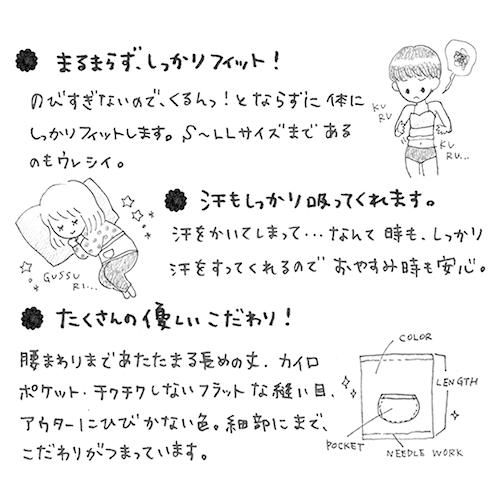 まるまらず、しっかりフィット！
のびすぎないので、くるんっ！とならずに体に
しっかりフィットします。S〜LLサイズまである
のもウレシイ。
KU
RU
KU
RU...
汗もしっかり吸ってくれます。
汗をかいてしまって・・・なんて時も、しっかり
汗をすってくれるので おやすみ時も安心。
GUSSU
RI...
たくさんの優しいこだわり！
腰まわりまであたたまる長めの丈、カイロ
ポケット・チクチクしないフラットな縫い目、
アウターにひびかない色。細部にまで、
こだわりがつまっています。
COLOR
LENGTH
POCKET
NEEDLE WORK